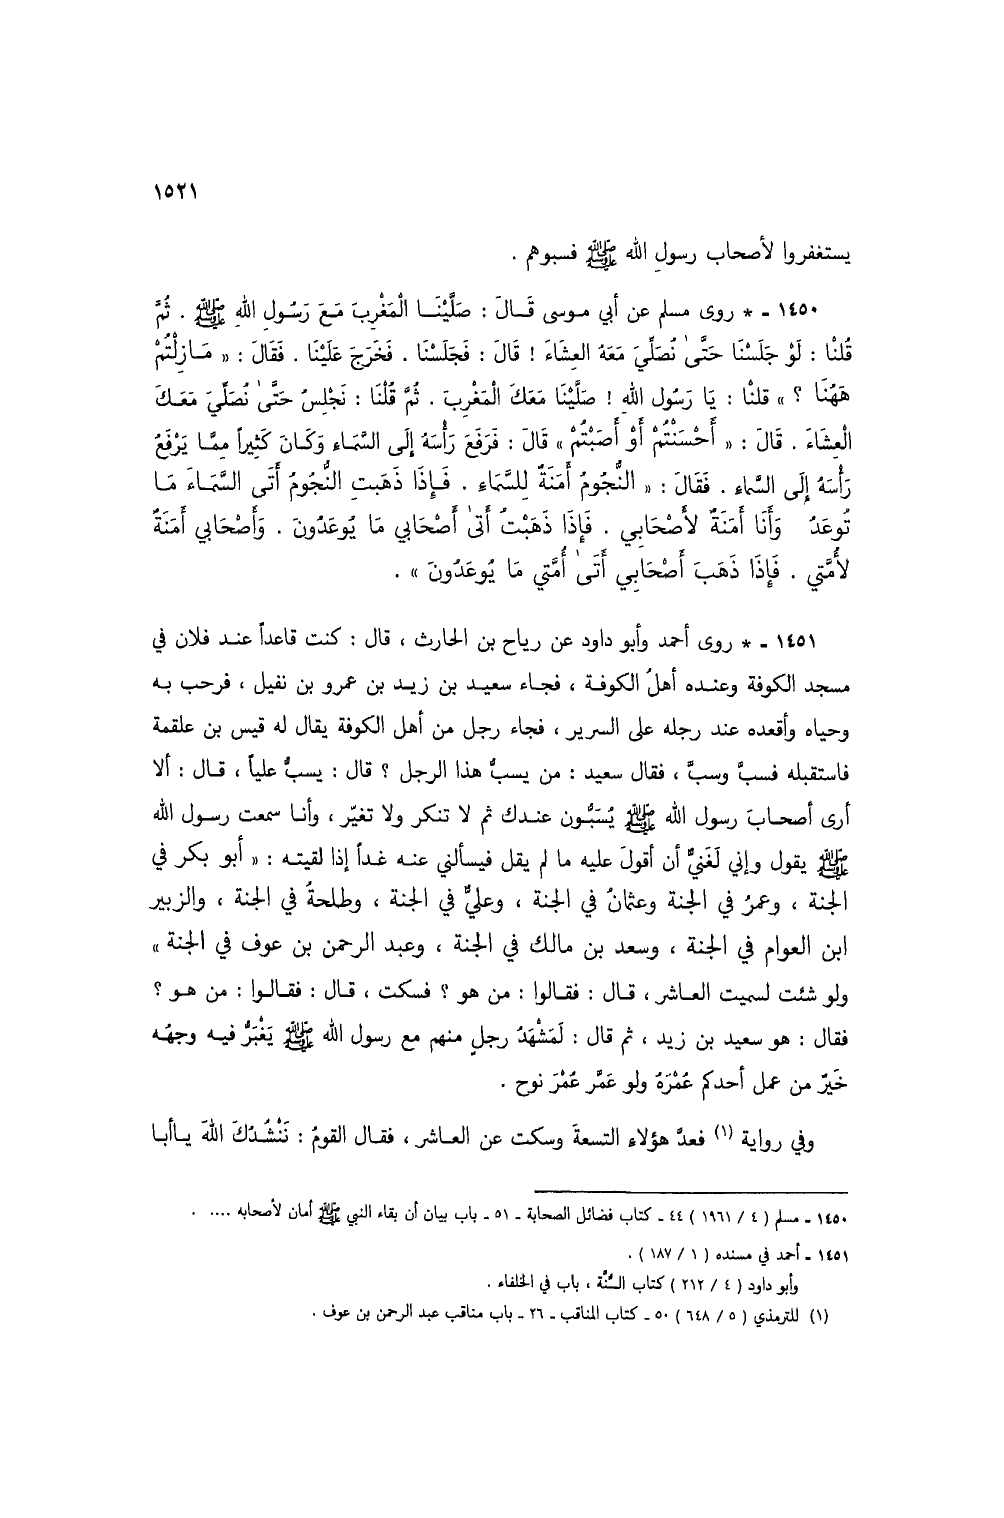 ١٥٢١
يستغفروا لأصحاب رسول الله ﷺ فسبوهم .
١٤٥٠ ـ * روى مسلم عن أبي موسى قَـالَ : صَلَّيْنَـا الْمَغْرِبَ مَـعَ رَسُـولِ اللهِ ﷺ . ثُمَّ
قُلنْا : لَوْ جَلَسْنَا حَتَّىٰ نُصَلِّيَ مَعَهُ العِشَاءَ ! قَالَ : فَجَلَسْنَا . فَخَرَجَ عَلَيْنَا . فَقَالَ : « مَـازِلْتُمْ
هَهُنَا ؟ » قلنْا : يَا رَسُولَ اللهِ ! صَلَّيْنَا مَعَكَ الْمَغْرِبَ . ثُمَّ قُلْنَا : نَجْلِسُ حَتَّىٰ نُصَلِّيَ مَعَـكَ
الْعِشَاءَ . قَالَ : « أَحْسَنْتُمْ أَوْ أَصَبْتُمْ » قَالَ : فَرَفَعَ رَأْسَهُ إِلَى السَّمَاءِ وَكَانَ كَثِيراً مِمَّـا يَرْفَعُ
رَأْسَهُ إِلَى السَّماءِ . فَقَالَ : « النُّجُومُ أَمَنَةٌ لِلسَّمَاءِ . فَـإِذَا ذَهَبَتِ النُّجُومُ أَتَى السَّمَـاءَ مَـا
تُوعَدُ وَأَنَا أَمَنَةٌ لأَصْحَابِي . فَإِذَا ذَهَبْتُ أَتىٰ أَصْحَابي مَا يُوعَدُونَ . وَأَصْحَابي أَمَنَةٌ
لأُمَّتي . فَإِذَا ذَهَبَ أَصْحَابِي أَتَىٰ أُمَّتي مَا يُوعَدُونَ » .
١٤٥١ ـ * روى أحمد وأبو داود عن رياح بن الحارث ، قال : كنت قاعداً عنـد فلان في
مسجد الكوفة وعنـده أهلُ الكوفـة ، فجـاء سعيـد بن زيـد بن عمرو بن نفيل ، فرحب بـه
وحياه وأقعده عند رجله على السرير ، فجاء رجل من أهل الكوفة يقال له قيس بن علقمة
فاستقبله فسبَّ وسبَّ ، فقال سعيد : من يسبُّ هذا الرجل ؟ قال : يسبُّ علياً ، قـال : ألا
أرى أصحـابَ رسول الله ﷺ يُسَبُّـون عنـدك ثم لا تنكر ولا تغيّر ، وأنـا سمعت رسـول الله
ﷺ يقول وإني لَغَنيٌّ أن أقولَ عليه ما لم يقل فيسألني عنـه غـداً إذا لقيتـه : « أبو بكر في
الجنة ، وعمرُ في الجنة وعثمانُ في الجنة ، وعليٌّ في الجنة ، وطلحةُ في الجنة ، والزبير
ابن العوام في الجنة ، وسعد بن مالك في الجنة ، وعبد الرحمن بن عوف في الجنة »
ولو شئت لسميت العـاشر ، قـال : فقـالوا : من هو ؟ فسكت ، قـال : فقـالـوا : من هـو ؟
فقال : هو سعيد بن زيد ، ثم قال : لَمَشْهَدُ رجلٍ منهم مع رسول الله ﷺ يَغْبَرُّ فيـه وجهُـه
خَيرٌ من عمل أحدكم عُمْرَهُ ولو عَمَّر عُمْرَ نوح .
وفي رواية (١) فعدَّ هؤلاء التسعةَ وسكت عن العـاشر ، فقـال القومُ : نَنْشُدُكَ اللهَ يـاأبـا
١٤٥٠ ـ مسلم ( ٤ / ١٩٦١ ) ٤٤ ـ كتاب فضائل الصحابة ـ ٥١ ـ باب بيان أن بقاء النبي ﷺ أمان لأصحابه .... .
١٤٥١ ـ أحمد في مسنده ( ١ / ١٨٧ ) .
وأبو داود ( ٤ / ٢١٢ ) كتاب السُّنَّة ، باب في الخلفاء .
(١) للترمذي ( ٥ / ٦٤٨ ) ٥٠ ـ كتاب المناقب ـ ٢٦ ـ باب مناقب عبد الرحمن بن عوف .